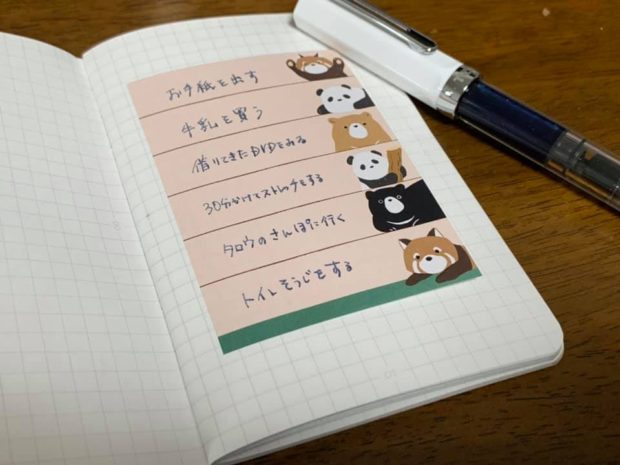 お手紙を出す
牛乳を買う
借りてきたDVDをみる
30分かけてストレッチをする
タロウのさんぽに行く
トイレそうじをする